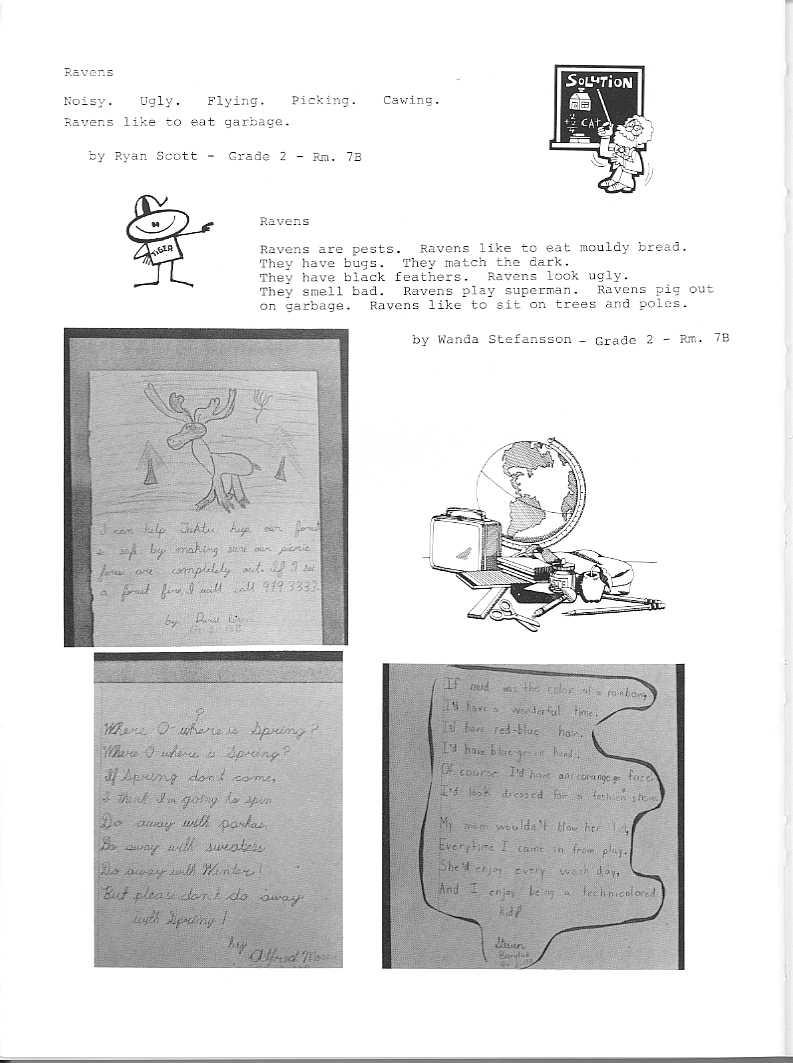 Ravens
Noisy. Ugly. Flying. Picking. Cawing.
Ravens like to eat garbage.
by Ryan Scott - Grade 2 - Rm. 7B
SOLUTION
CAT
TIGER
Ravens
Ravens are pests. Ravens like to eat mouldy bread.
They have bugs. They match the dark.
They have black feathers. Ravens look ugly.
They smell bad. Ravens play superman. Ravens pig out
on garbage. Ravens like to sit on trees and poles.
by Wanda Stefansson - Grade 2 - Rm. 7B
I can help Tuktu our forest
safe by making sure our picnic
are completely out. If I see
a forest fire, I will call
by
Where O where is Spring?
Where O where is Spring?
If Spring don't come,
I think I'm going to spin
Do away with parkas,
Do away with sweaters
Do away with Winter!
But please don't do away
with Spring!
by
Alfred
If mud was the color of a rainbow,
I'd have a wonderful time.
I'd have red-blue hair.
I'd have blue-green hand.
Of course I'd have an orange face.
I'd look dressed for a fashion show.
My mom wouldn't blow her lid,
Everytime I came in from play.
She'd enjoy every wash day,
And I enjoy being a technicolored
kid!
Steven